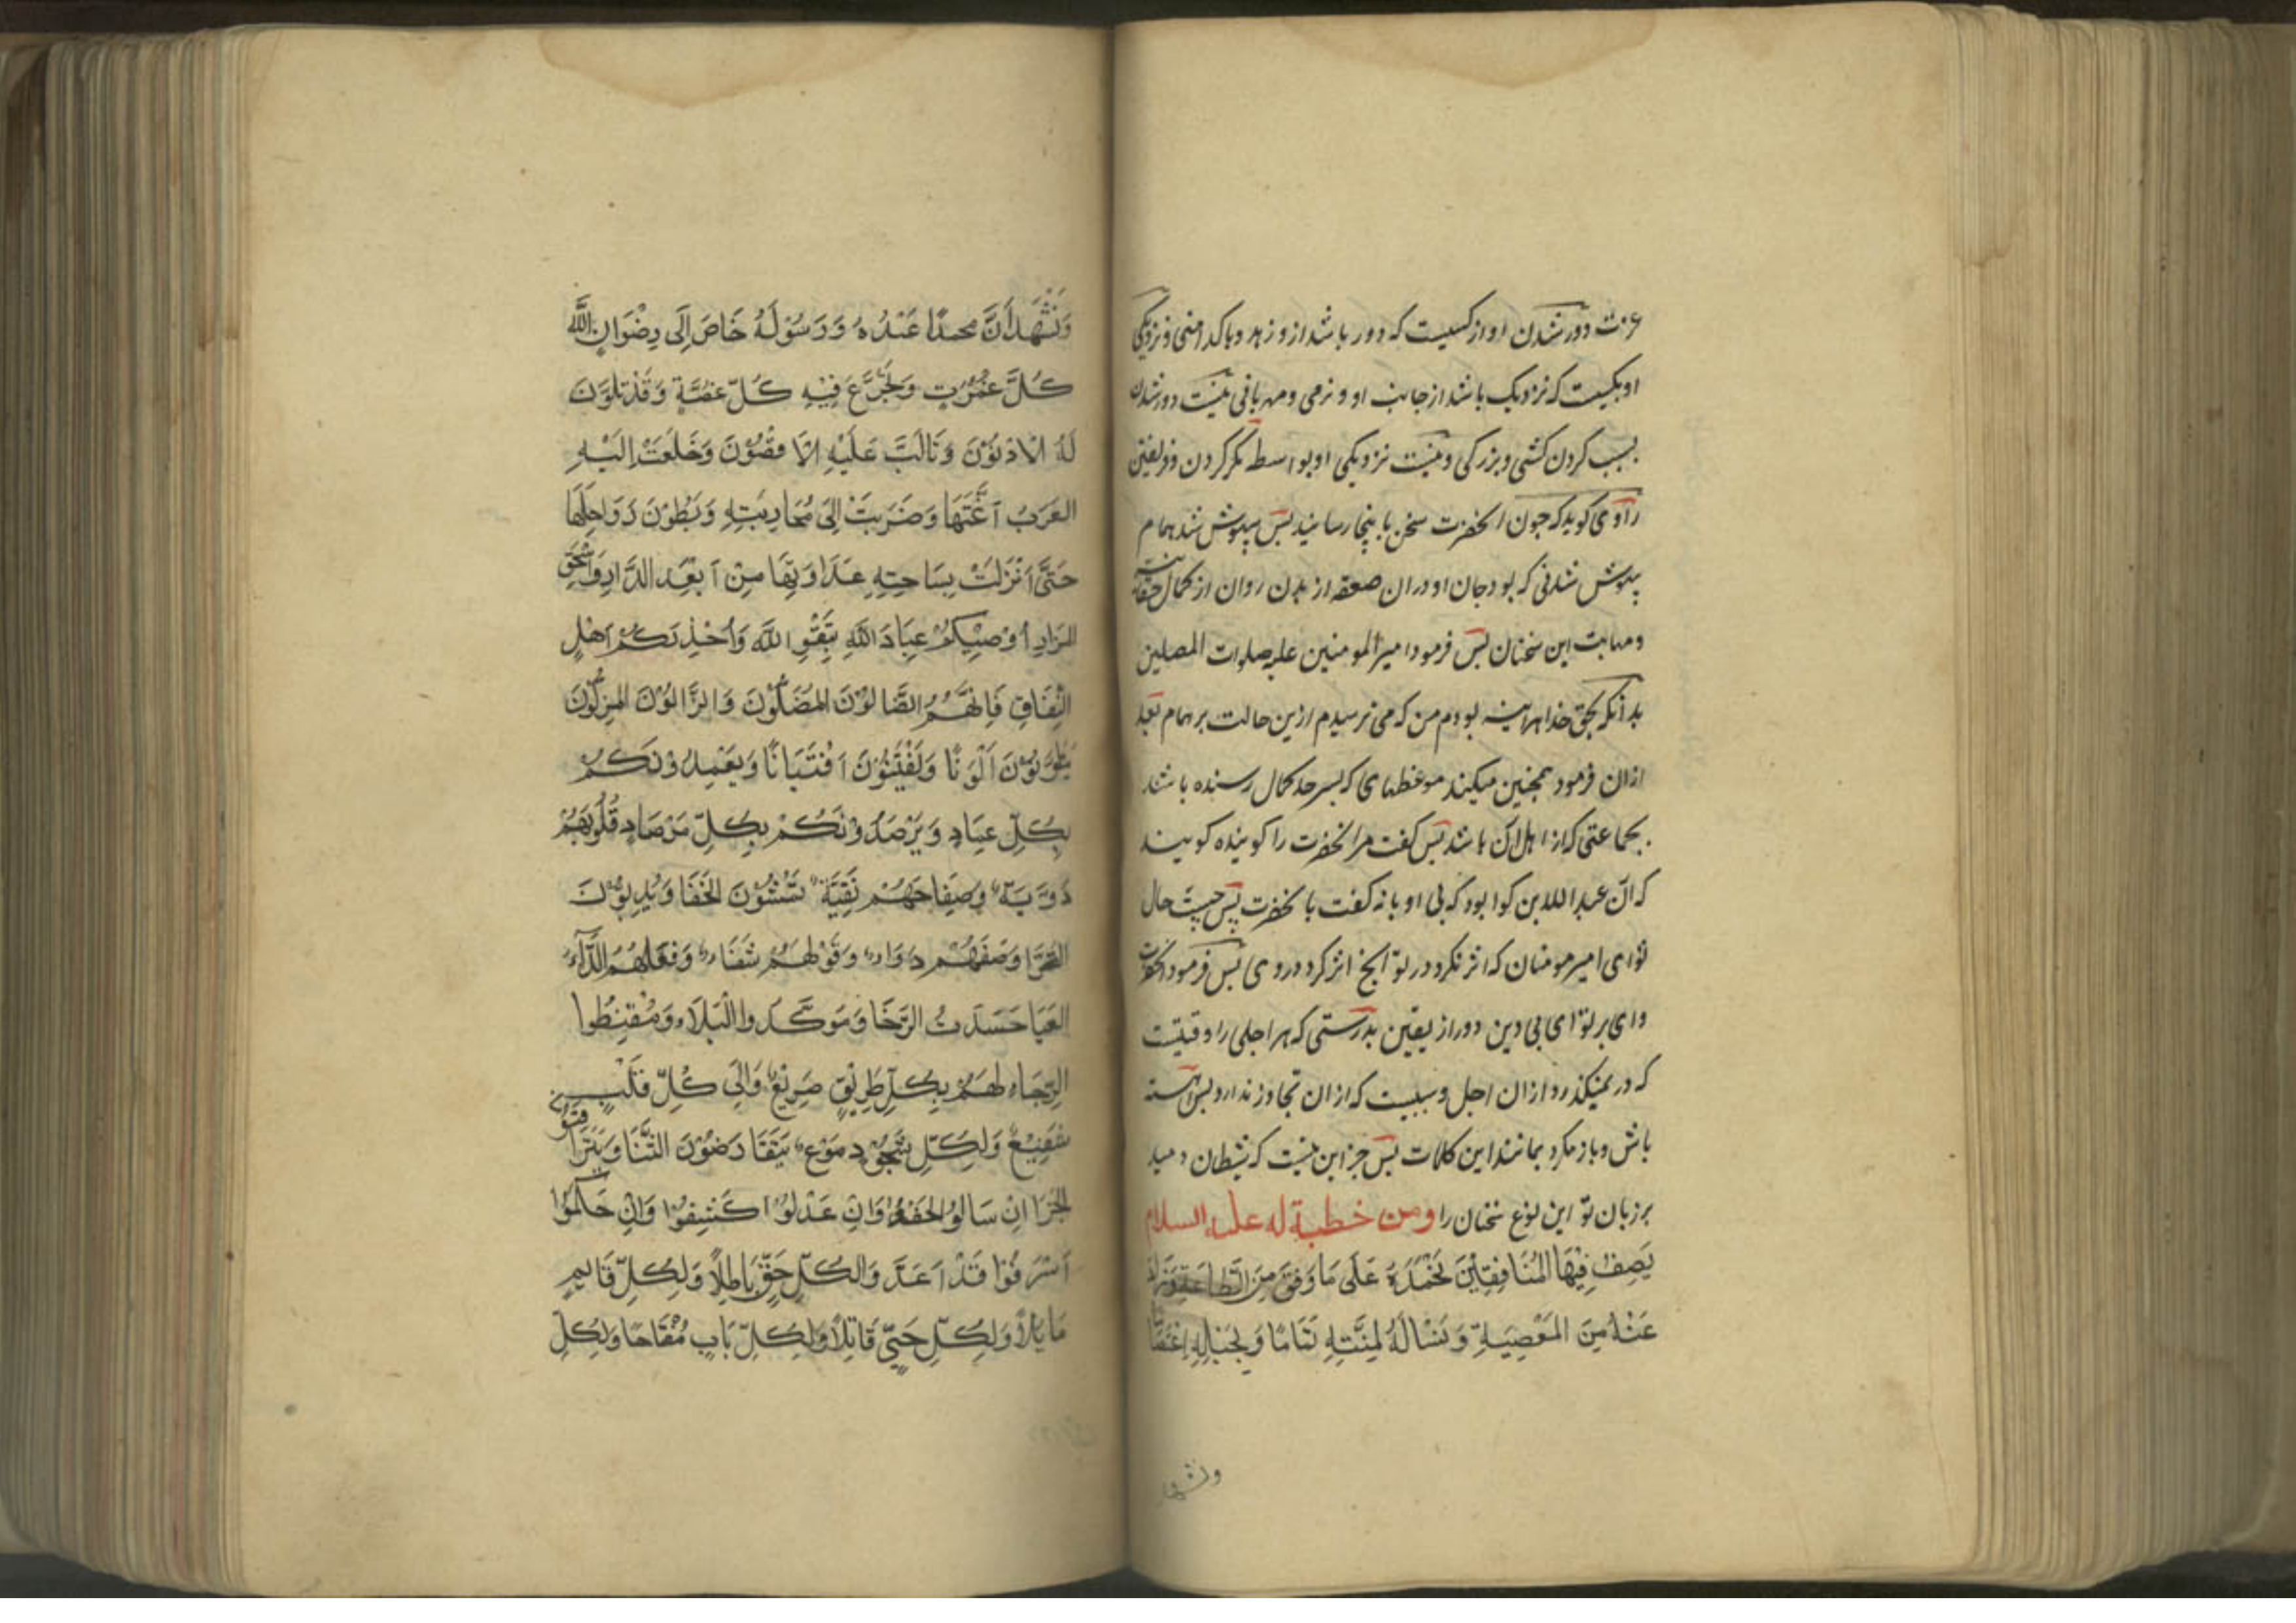 عزت دور شدن او از کسیست که دور باشد ازو زهد و پاکدامنی و نزدیکی
او بکسیست که نزدیک باشد از جانب او و نرمی و مهربانی نیست دور شدن
بسبب کردن کشی و بزرکی و نیست نزدیکی او بواسطه مکر کردن و فریفتن
راوی کوید که جون انحضرت سخن باینجا رسانید پس بیهوش شد همام
بیهوش شدنی که بود جان او در ان صعقه از بدن روان از کمال
و مهابت این سخنان پس فرمود امیر المومنین علیه صلوات المصلین
بدانکه بحق خدا هراینه بودم من که می ترسیدم ازین حالت بر همام بعد
ازان فرمود همچنین میکند موعظهای که بسر حد کمال رسنده باشد
بجماعتی که از اهل آن باشد پس کفت مر انحضرت را کوینده کویند
که آن عبد الله بن کوا بود که بی اوبانه کفت با نحضرت پس چیست حال
تو ای امیر مومنان که اثر نکرد در تو انچ اثر کرد در وی پس فرمود انحضرت
وای بر تو ای بی دین دور از یقین بدرستی که هر اجلی را وقتیست
که در نمیکذرد ازان اجل و سببیست که ازان تجاوز ندارد پس آهسته
باش و باز مکرد بمانند این کلمات پس جز این نیست که شیطان دمید
بر زبان تو این نوع سخنان را ومن خطبة له علیه السلام
يَصِفُ فِيْهَا الْمُنَافِقِيْنَ نَحْمَدُهُ عَلَى مَا وَفَّقَ مِنَ الطَّاعَةِ وَذَادَ
عَنْهُ مِنَ المَعْصِيَةِ وَنَسْاَلُهُ لِمِنَّتِهِ تَمَامًا وَبِحَبْلِهِ اِعْتِصَامًا
ونشهد
وَنَشْهَدُ اَنَّ محمدًا عَبْدُهُ وَرَسُوْلُهُ خَاضَ اِلَى رِضْوَانِ اللّٰهِ
كُلَّ غَمْرَةٍ وَتَجَرَّعَ فِيْهِ كُلَّ غُصَّةٍ وَقَدْ تَلَوَّنَ
لَهُ الْاَدْنَوْنَ وَتَاَلَّبَ عَلَيْهِ الْاَقْصَوْنَ وَخَلَعَتْ اِلَيْهِ
العَرَبُ اَعِنَّتَهَا وَضَرَبَتْ اِلَى مُحَارَبَتِهِ وَبُطُوْنَ رَوَاحِلِهَا
حَتَّى اَنْزَلَتْ بِسَاحَتِهِ عَدَاوَتَهَا مِنْ اَبْعَدِ الدَّارِ وَاَسْحَقِ
المَزَارِ اُوْصِيْكُمْ عِبَادَ اللّٰهِ بِتَقْوَى اللّٰهِ وَاُحَذِّرُكُمْ اَهْلَ
النِّفَاقِ فَاِنَّهُمُ الضَّالُوْنَ المُضِلُّوْنَ وَالزَّالُوْنَ المُزِلُّوْنَ
يَتَلَوَّنُوْنَ اَلْوَنًا وَيَفْتَنُّوْنَ افْتِنَانًا وَيَعْمِدُوْنَكُمْ
بِكُلِّ عِمَادٍ وَيَرْصُدُوْنَكُمْ بِكُلِّ مَرْصَادٍ قُلُوْبُهُمْ
دَوِيَّةٌ وَصِفَاحُهُمْ نَقِيَّةٌ تَمْشُوْنَ الخَفَا وَيَدِبُّوْنَ
الضَّرَّا وَصْفُهُمْ دَوَاءٌ وَقَوْلُهُمْ شِفَاءٌ وَفِعْلُهُمُ الدَّآءُ
العَيَا حَسَدَتُ الرَّخَا وَمُوَكِّدُوا الْبَلَاءِ وَمُقْنِطُوا
الرَّجَاءِ لَهُمْ بِكُلِّ طَرِيْقٍ صَرِيْعٌ وَاِلَى كُلِّ قَلْبٍ
شَفِيْعٌ وَلِكُلِّ شَجْوٍ دُمَوْعٌ يَتَقَارَضُوْنَ الثَّنَا وَيَتَرَاقَبُوْنَ
الجَزَا اِنْ سَاَلُوْا الحَفُوْا وَاِنْ عَذَلُوْا كَشِفُوْا وَاِنْ حَكَمُوْا
اَسْرَفُوْا قَدْ اَعَدَّ وَالكُلِّ حَقٍّ بَاطِلًا وَلِكُلِّ قَايِمٍ
مَايِلًا وَلِكُلِّ حَيٍّ قَاتِلًا وَلِكُلِّ بَابٍ مُفْتَاحًا وَلِكُلِّ